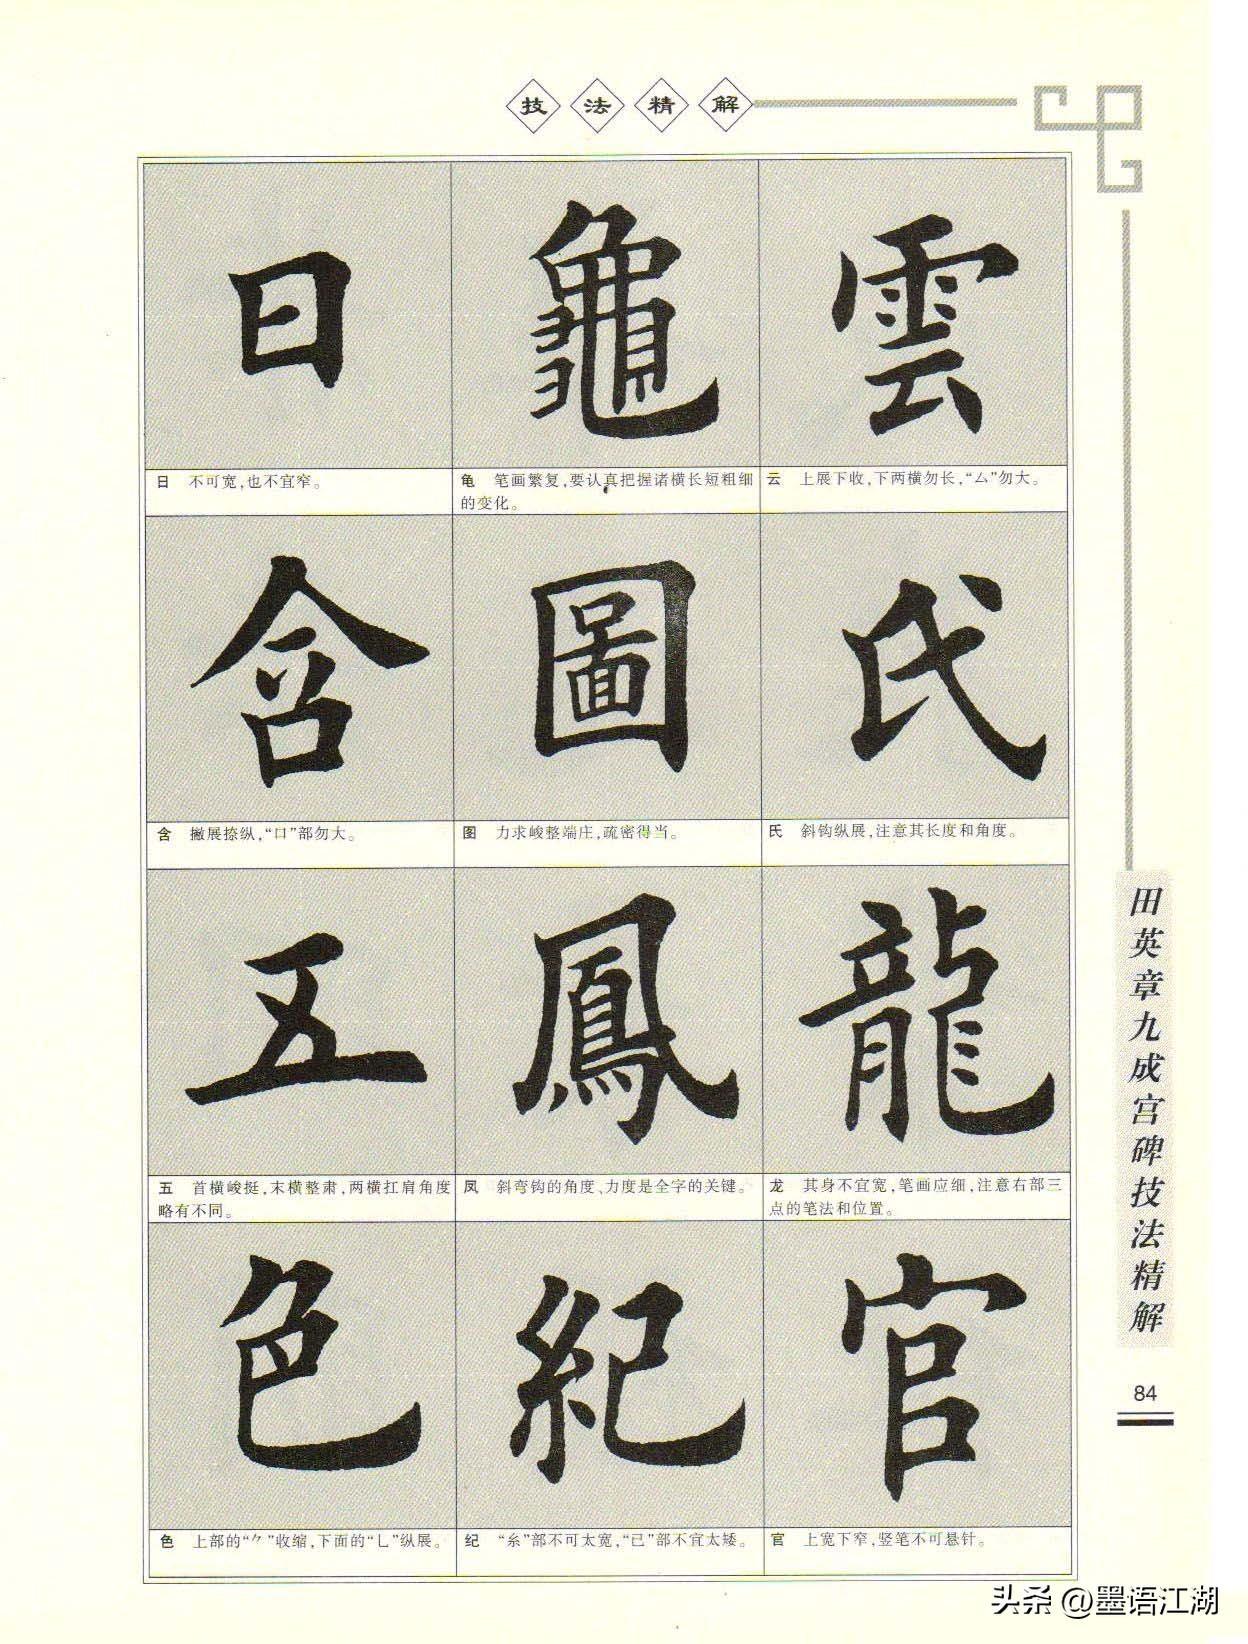 技法精解
日 龜 雲
日 不可宽,也不宜窄。
龟 笔画繁复,要认真把握诸横长短粗细
的变化。
云 上展下收,下两横勿长,“厶”勿大。
含 圖 氏
含 撇展捺纵,“口”部勿大。
图 力求峻整端庄,疏密得当。
氏 斜钩纵展,注意其长度和角度。
五 鳳 龍
五 首横峻挺,末横整肃,两横扛肩角度
略有不同。
凤 斜弯钩的角度、力度是全字的关键。
龙 其身不宜宽,笔画应细,注意右部三
点的笔法和位置。
色 紀 官
色 上部的“⺈”收缩,下面的“乚”纵展。
纪 “糸”部不可太宽,“己”部不宜太矮。
官 上宽下窄,竖笔不可悬针。
田英章九成宫碑技法精解
84
头条 @墨语江湖